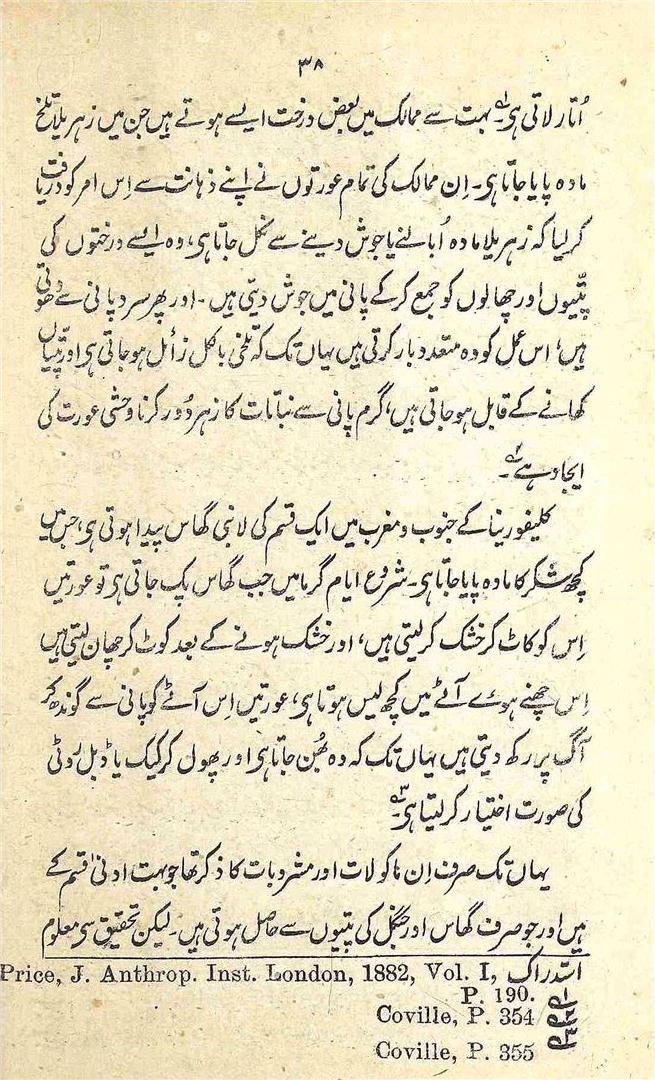 ۳۸
اُتار لاتی ہی۔ ؎۱ بہت سے ممالک میں بعض درخت ایسے ہوتے ہیں جن میں زہریلا تلخ
مادہ پایا جاتا ہی۔ اِن ممالک کی تمام عورتوں نے اپنے ذہانت سے اِس امر کو دریافت
کر لیا کہ زہریلا مادہ اُبالنے یا جوش دینے سے نکل جاتا ہی، وہ ایسے درختوں کی
پتّیوں اور چھالوں کو جمع کر کے پانی میں جوش دیتی ہیں ۔ اور پھر سرد پانی سے دھوتی
ہیں، اس عمل کو وہ متعدد بار کرتی ہیں یہاں تک کہ تلخی بالکل زائل ہو جاتی ہی اور پتّیاں
کھانے کے قابل ہو جاتی ہیں، گرم پانی سے نباتات کا زہر دُور کرنا وحشی عورت کی
ایجاد ہے ؎۲ ۔
کلیفورینا کے جنوب و مغرب میں ایک قسم کی لانبی گھاس پیدا ہوتی ہی، جس میں
کچھ شکر کا مادہ پایا جاتا ہی۔ شروع ایام گرما میں جب گھاس پک جاتی ہی تو عورتیں
اِس کو کاٹ کر خشک کر لیتی ہیں، اور خشک ہونے کے بعد کوٹ کر چھان لیتی ہیں
اِس چھنے ہوئے آٹے میں کچھ لیس ہوتا ہی، عورتیں اِس آٹے کو پانی سے گوندھ کر
آگ پر رکھ دیتی ہیں یہاں تک کہ وہ بھُن جاتا ہی اور پھول کر کیک یا ڈبل روٹی
کی صورت اختیار کر لیتا ہی۔ ؎۳
یہاں تک صرف اِن ماکولات اور مشروبات کا ذکر تھا جو بہت ادنیٰ قسم کے
ہیں اور جو صرف گھاس اور جنگل کی پتیوں سے حاصل ہوتی ہیں۔ لیکن تحقیق سی معلوم
استدراک Price, J. Anthrop. Inst. London, 1882, Vol. I,
؎۱ P. 190.
؎۲ Coville, P. 354
؎۳ Coville, P. 355